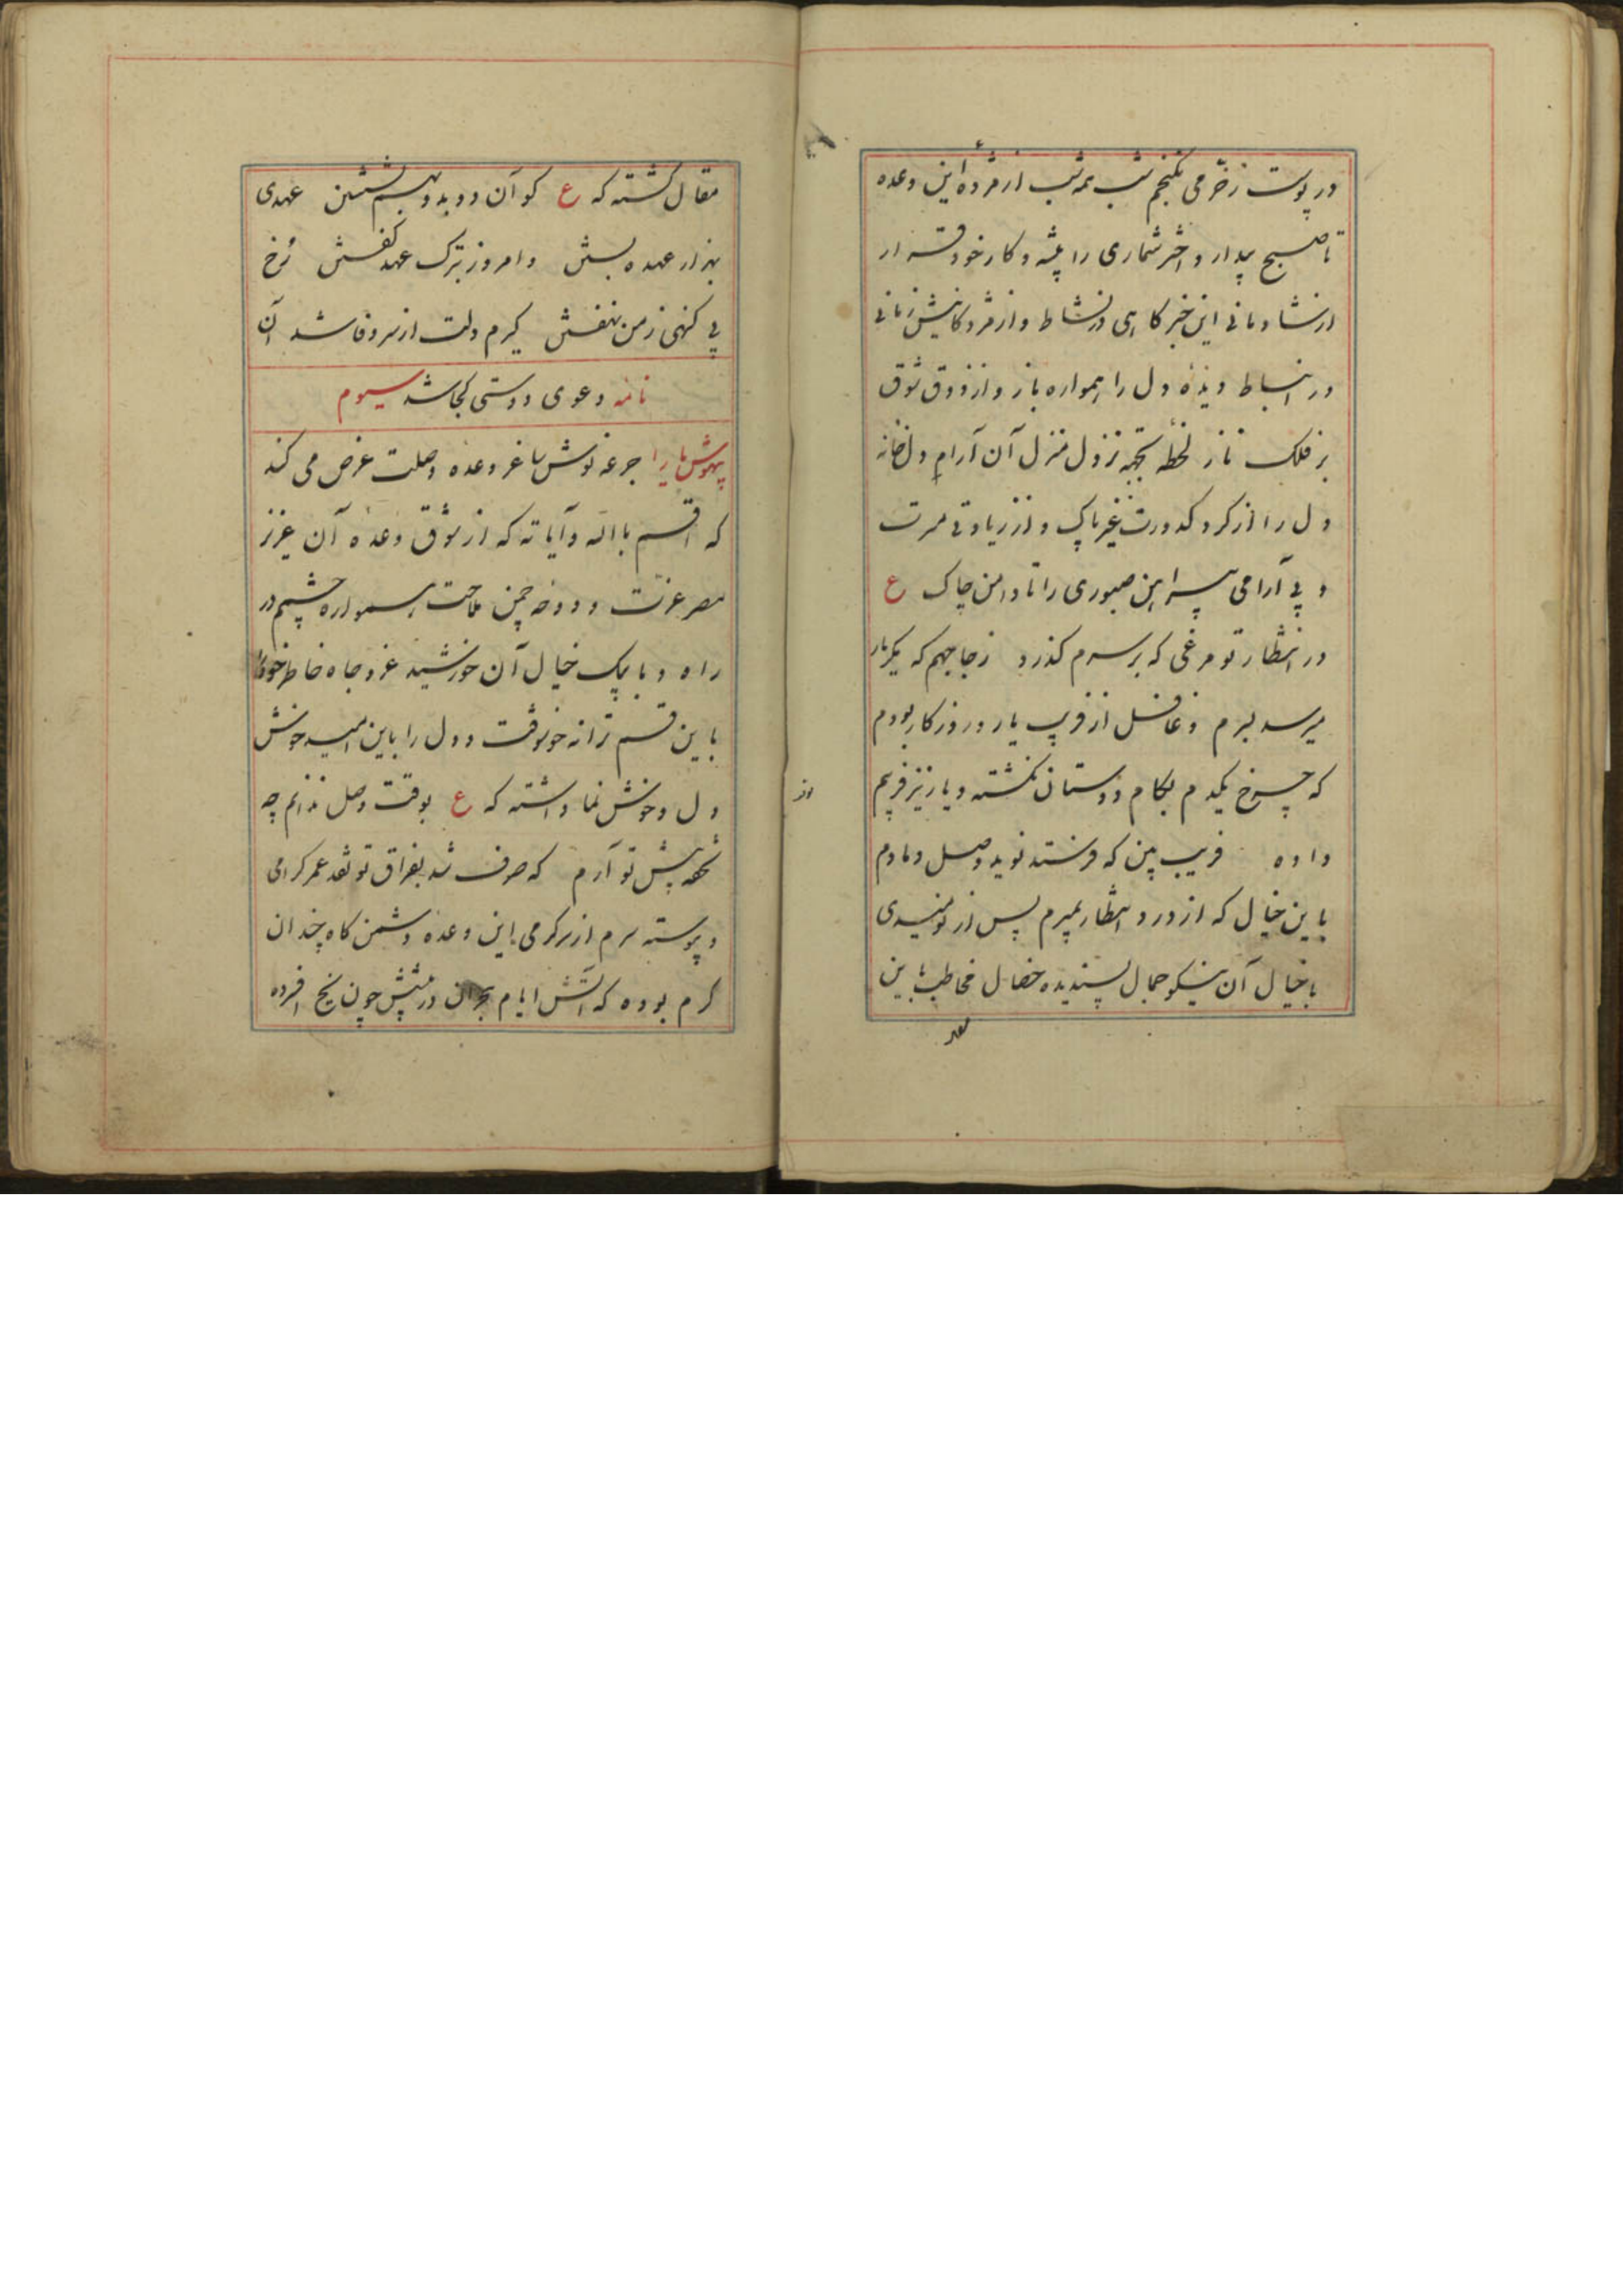 در پوست ز خرمی نگنجم شب همه شب از مژده این وعده
تا صبح بیدار و اختر شماری را پیشه و کار خود قرار
از شادمانی این خبر گاهی در نشاط و از مژدگانیش زمانی
در انبساط دیده دل را همواره باز و از ذوق شوق
بر فلک ناز لحظه بجهة نزول منزل آن آرام دل خانه
دل را از کرد کدورت غیر پاک و از زیادتی مسرت
و بی آرامی پیراهن صبوری را تا دامن چاک ع
در انتظار تو مرغی که بر سرم کذرد ز جا جهم که یکبار
میرسد بسرم و غافل از فریب یار و روزکار بودم
که چرخ یکدم بکام دوستان نکشته و یار نیز فریبم
داده فریب بین که فرستد نوید وصل دمادم
باین خیال که از درد انتظار بمیرم پس از نومیدی
با خیال آن نیکو جمال پسندیده خصال مخاطب باین
مقال کشته که ع کو آن دو بدو بهم نشستن عهدی
بهزار عهده بستن و امروز بترک عهد گفتن رخ
بی کنهی ز من نهفتن کیرم دلت از سر وفا شد آن
نامه دعوی دوستی کجا شد سیوم
بیهوش ما را جرعه نوش ساغر وعده وصلت عرض می کند
که اقسم بالله و آیاته که از شوق وعده آن عزیز
مصر عزت و دوحه چمن ملاحت همواره چشم در
راه و با پیک خیال آن خورشید عز و جاه خاطر خود را
باین قسم ترانه خوشوقت و دل را باین امید خوش
دل و خوش نما داشته که ع بوقت وصل ندانم چه
تحفه پیش تو آرم که صرف شد بفراق تو نقد عمر کرامی
و پیوسته سرم از سرکرمی این وعده دشمن کاه چندان
کرم بوده که آتش ایام هجران در پیشش چون یخ افسرده